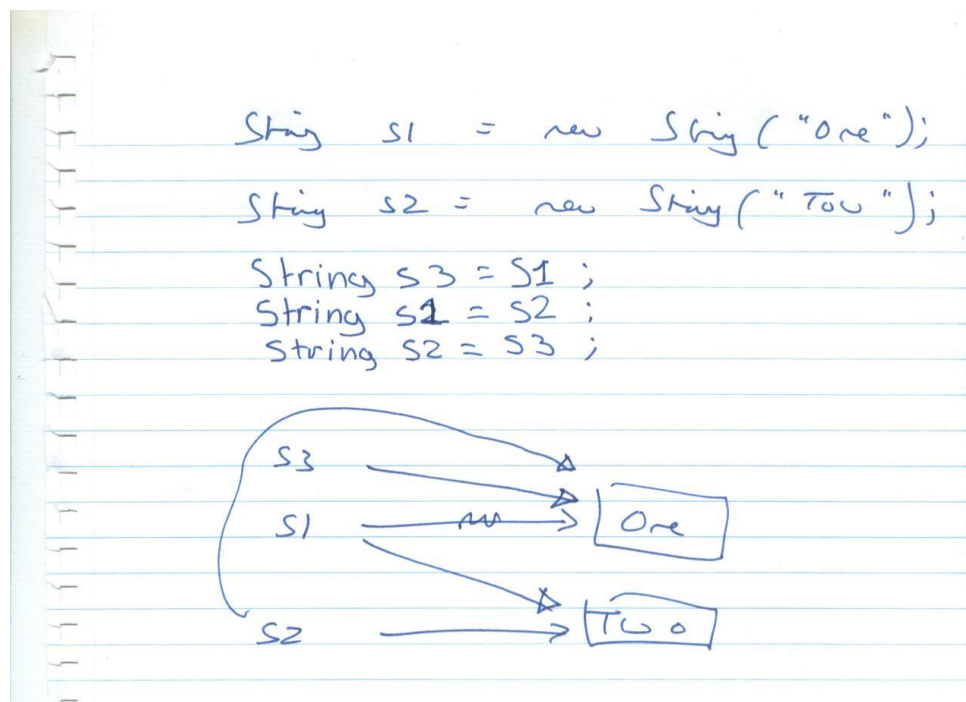 String s1 = new String ("One");
String s2 = new String ("Tow");
String s3 = S1 ;
String s1 = s2 ;
String s2 = s3 ;
s3
s1
One
s2
Two